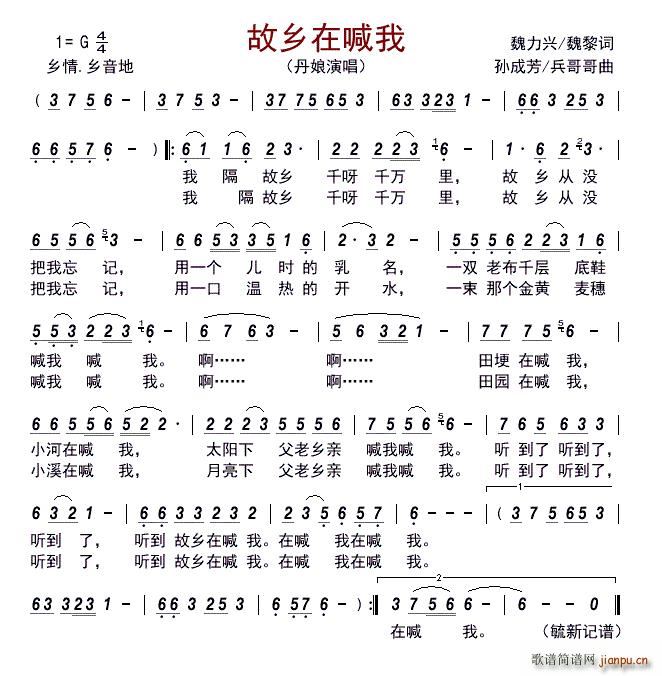 故乡在喊我
1= G 4/4
魏力兴/魏黎词
乡情.乡音地
（丹娘演唱）
孙成芳/兵哥哥曲
( 3 7 5 6 - | 3 7 5 3 - | 3 7 7 5 6 5 3 | 6 3 3 2 3 1 - | 6 6 3 2 5 3 |
6 6 5 7 6 - ) |: 6 1 1 6 2 3 · | 2 2 2 2 3 6 - | 1 · 6 2 3 · |
我 隔 故乡 千呀 千万 里， 故 乡 从 没
我 隔 故乡 千呀 千万 里， 故 乡 从 没
6 5 5 6 3 - | 6 6 5 3 3 5 1 6 | 2 · 3 2 - | 5 5 5 6 2 2 3 1 6 |
把我忘 记， 用一个 儿 时 的 乳 名， 一双 老布千层 底鞋
把我忘 记， 用一口 温 热 的 开 水， 一束 那个金黄 麦穗
5 5 3 2 2 3 6 - | 6 7 6 3 - | 5 6 3 2 1 - | 7 7 7 5 6 - |
喊我 喊 我。 啊…… 啊…… 田埂 在喊 我，
喊我 喊 我。 啊…… 啊…… 田园 在喊 我，
6 6 5 5 6 5 2 2 · | 2 2 2 3 5 5 5 6 | 7 5 5 6 6 - | 7 6 5 6 3 3 |
小河在喊 我， 太阳下 父老乡亲 喊我喊 我。 听 到了 听到了，
小溪在喊 我， 月亮下 父老乡亲 喊我喊 我。 听 到了 听到了，
6 3 2 1 - | 6 6 3 3 2 3 2 | 1 6 6 5 6 5 7 | 6 - - - | ( 3 7 5 6 5 3 |
听到 了， 听到 故乡在喊 我。在喊 我在喊 我。
听到 了， 听到 故乡在喊 我。在喊 我在喊 我。
6 3 3 2 3 1 - | 6 6 3 2 5 3 | 6 5 7 6 - ) :| 3 7 5 6 6 - | 6 - - 0 ‖
在喊 我。 （毓新记谱）
歌谱简谱网
jianpu.cn